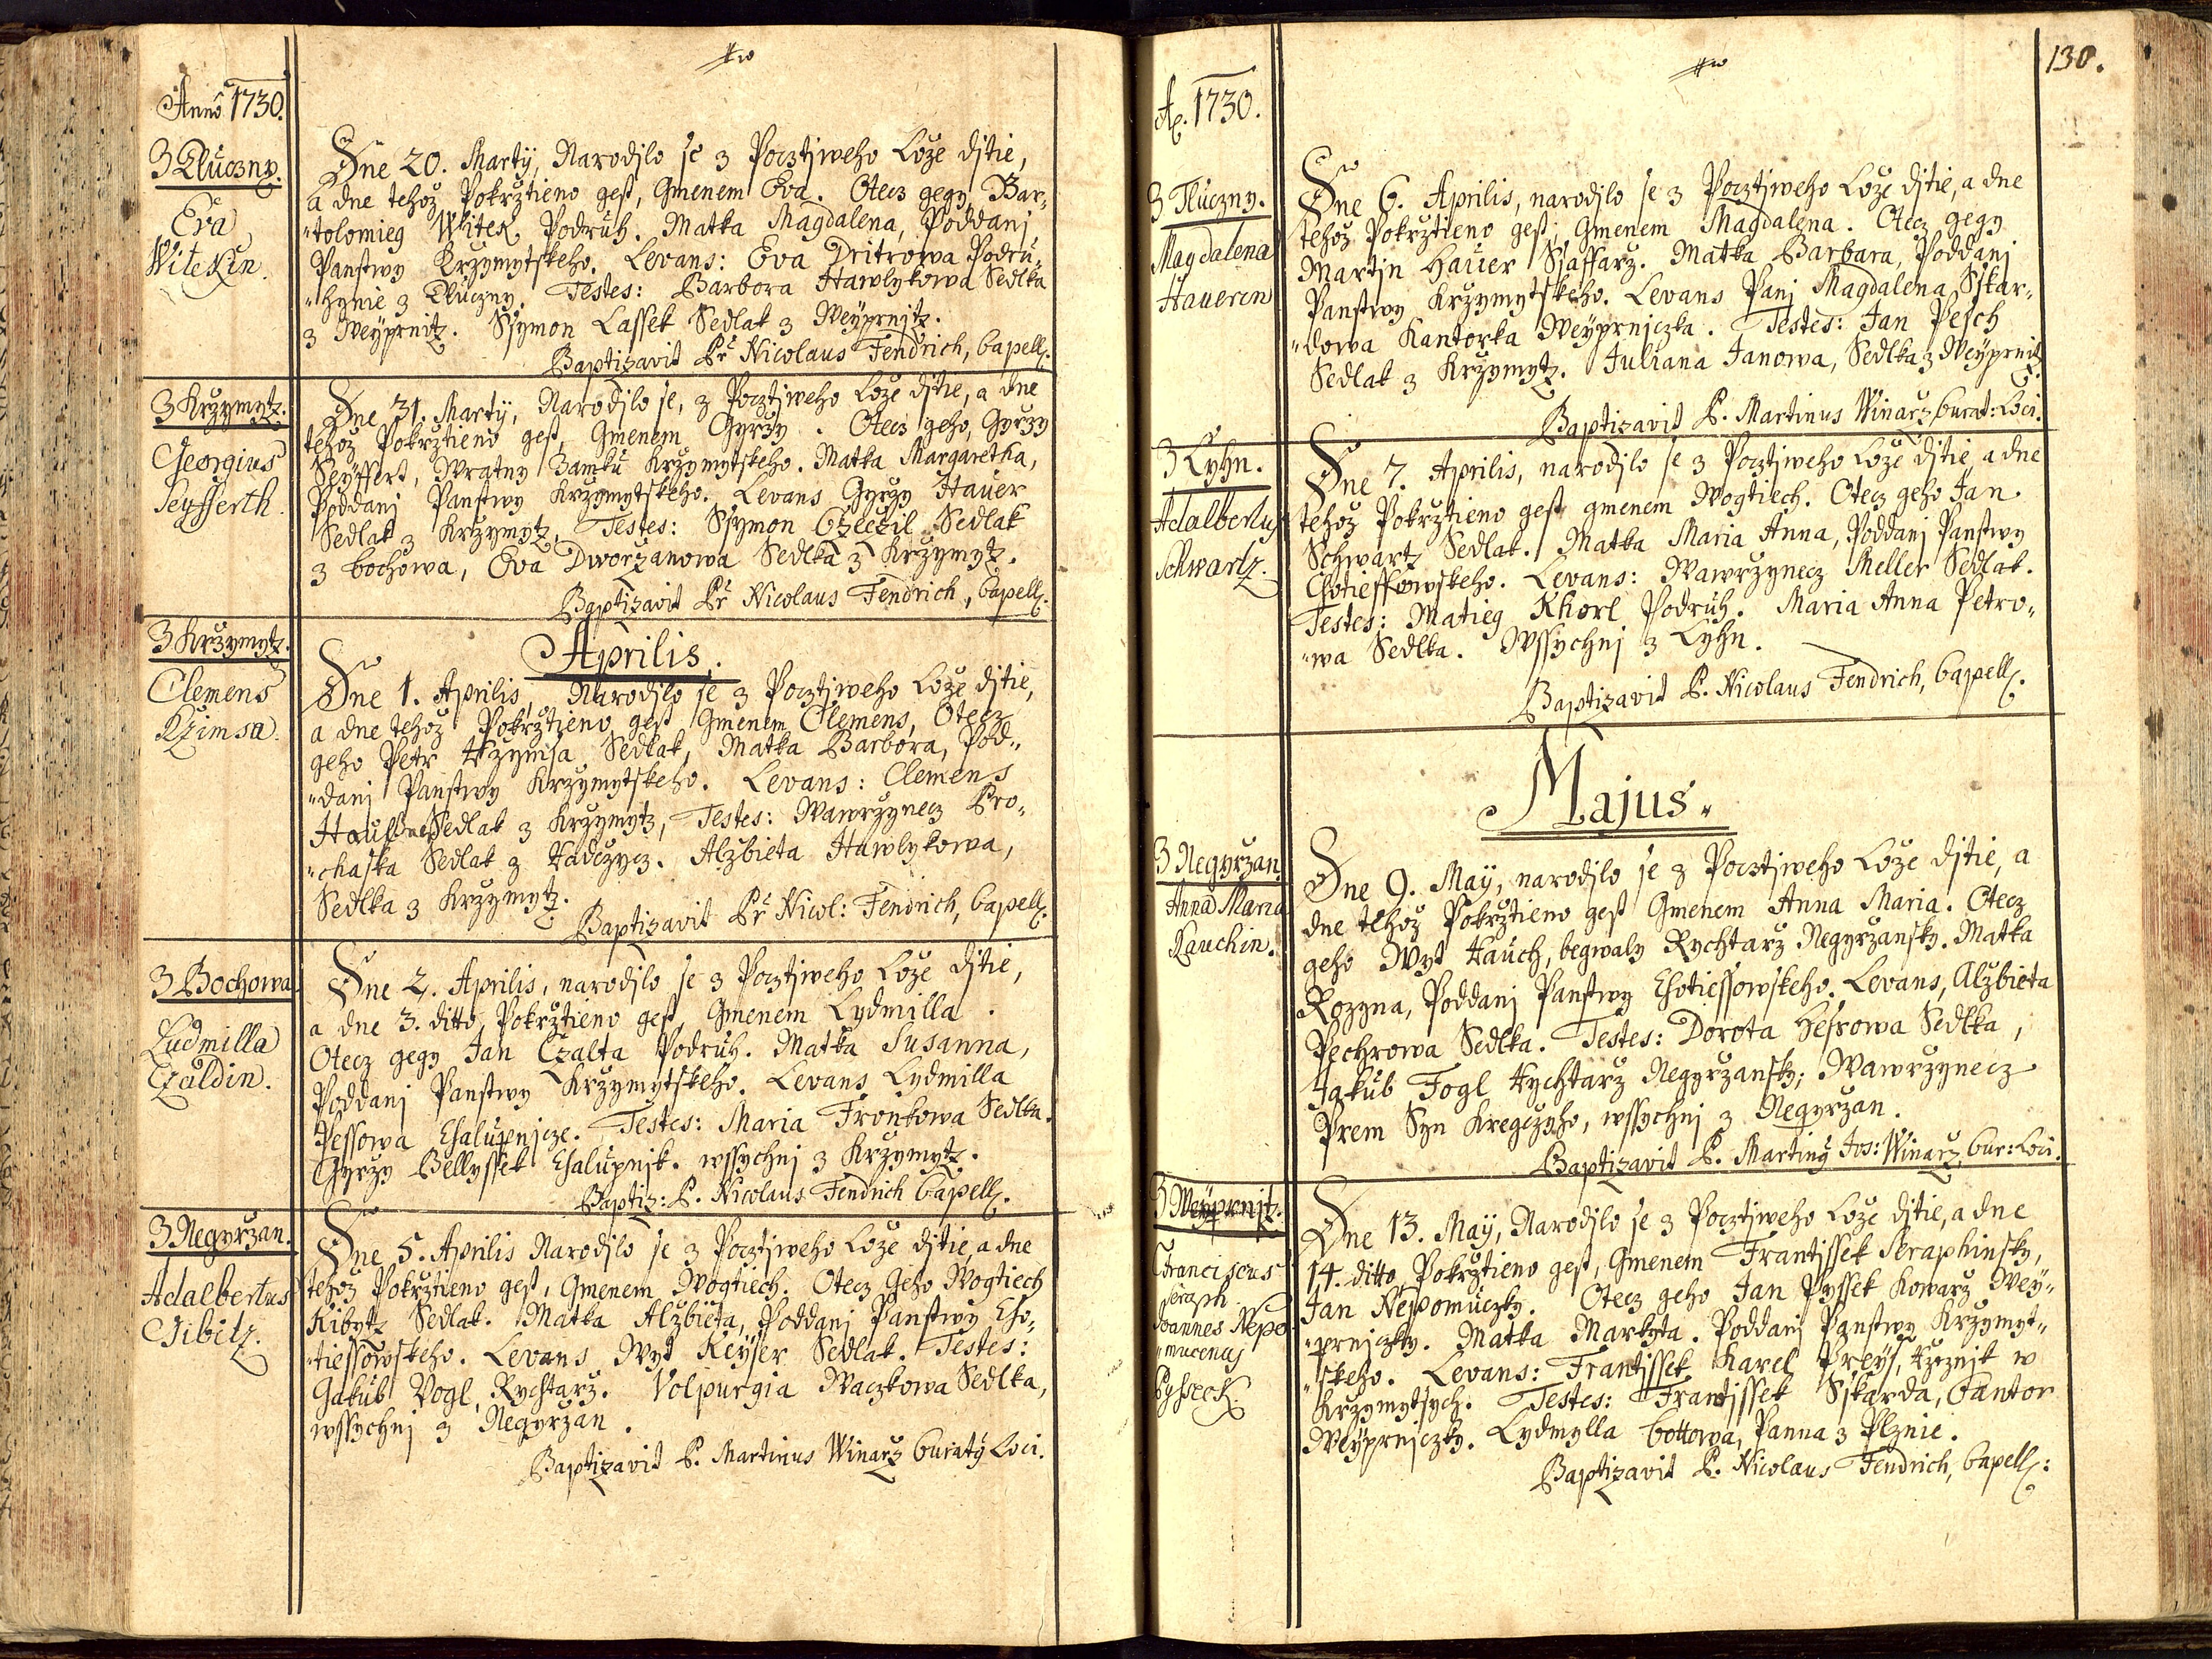 Anno 1730.
Z Tluczny.
Eva
Witekin.
Dne 20. Martÿ, Narodjlo se z Pocztjweho Loze djtie,
a dne tehoz Pokrztieno gest, Gmenem Eva. Otecz gegy Bar„
„tolomieg Witek Podruh. Matka Magdalena, Poddanj
Panstwy Krzymytskeho. Levans: Eva Dritrowa Podru„
„hynie z Tluczny. Testes: Barbora Hawlykowa Sedlka
z Weÿprnitz. Ssymon Lassek Sedlak z Weÿprnjtz.
Baptizavit Pr Nicolaus Fendrich, Capell.
Z Krzymytz.
Georgius
Seyfferth.
Dne 31. Martÿ, Narodjlo se, z Pocztjweho Loze djtie, a dne
tehoz Pokrztieno gest, Gmenem Gyrzy. Otecz geho, Gyrzy
Seÿffert, Wratny Zamku Krzymytskeho. Matka Margaretha,
Poddanj Panstwy Krzymytskeho. Levans Gyrzy Hauer
Sedlak z Krzymytz, Testes: Ssymon Czeczil Sedlak
z Cochowa, Eva Dworzanowa Sedlka z Krzymytz.
Baptizavit Pr Nicolaus Fendrich, Capell.
Aprilis.
Z Krzymytz.
Clemens
Rzimsa.
Dne 1. Aprilis, Narodjlo se z Pocztjweho Loze djtie,
a dne tehoz Pokrztieno gest Gmenem Clemens, Otecz
geho Petr Rzymsa Sedlak, Matka Barbora, Pod„
„danj Panstwy Krzymytskeho. Levans: Clemens
Sedlak z Krzymytz, Testes: Wawrzynecz Pro„
„chaska Sedlak z Radczycz. Alzbieta Hawlykowa,
Sedlka z Krzymytz.
Baptizavit Pr Nicol: Fendrich, Capell.
Z Bochowa
Ludmilla
Czaldin.
Dne 2. Aprilis, narodjlo se z Pocztjweho Loze djtie,
a dne 3. ditto, Pokrztieno gest Gmenem Lydmilla.
Otecz gegy Jan Czalta Podruh. Matka Susanna,
Poddanj Panstwy Krzymytskeho. Levans Lydmilla
Pessowa Chalupnjcze. Testes: Maria Fronkowa Sedlka.
Gyrzy Bellyssek Chalupnjk. wssychnj z Krzymytz.
Baptiz: P. Nicolaus Fendrich Capell.
Z Negyrzan.
Adalbertus
Gibitz.
Dne 5. Aprilis Narodjlo se z Pocztjweho Loze djtie, a dne
tehoz Pokrztieno gest, Gmenem Wogtiech. Otecz Geho Wogtiech
Kibytz Sedlak. Matka Alzbieta, Poddanj Panstwy Cho„
„tiessowskeho. Levans Wyt Keÿser Sedlak. Testes:
Gakub Vogl, Rychtarz. Volpurgia Waczkowa Sedlka,
wssychnj z Negyrzan.
Baptizavit P. Martinus Winarz Curaty Loci.
130.
A. 1730.
Z Tluczny.
Magdalena
Hauerin
Dne 6. Aprilis, narodjlo se z Pocztjweho Loze djtie, a dne
tehoz Pokrztieno gest, Gmenem Magdalena. Otecz gegy
Martjn Hauer Ssaffarz. Matka Barbara, Poddanj
Panstwy Krzymytskeho. Levans Panj Magdalena Sskar„
„dowa Kantorka Weÿprnjczka. Testes: Jan Pesch
Sedlak z Krzymytz. Juliana Janowa, Sedlka z Weÿprnitz.
Baptizavit P. Martinus Winarz, Curat: Loci.
Z Lyhn.
Adalbertus
Schwartz.
Dne 7. Aprilis, narodjlo se z Pocztjweho Loze djtie, a dne
tehoz Pokrztieno gest gmenem Wogtiech. Otecz geho Jan
Schwartz Sedlak. Matka Maria Anna, Poddanj Panstwy
Chotiessowskeho. Levans: Wawrzynecz Meller Sedlak.
Testes: Matieg Khorl Podruh. Maria Anna Petro„
„wa Sedlka. Wssychnj z Lyhn.
Baptizavit P. Nicolaus Fendrich, Capell.
Majus.
Z Negyrzan.
Anna Maria
Rauchin.
Dne 9. May, narodjlo se z Pocztjweho Loze djtie, a
dne tehoz Pokrztieno gest Gmenem Anna Maria. Otecz
geho Wyt Rauch, begwaly Rychtarz Negyrzansky. Matka
Rozyna, Poddanj Panstwy Chotiessowskeho. Levans, Alzbieta
Pechrowa Sedlka. Testes: Dorota Hesrowa Sedlka,
Jakub Fogl Rychtarz Negyrzansky; Wawrzynecz
Prem Syn Kregczyho, wssychnj z Negyrzan.
Baptizavit P. Martiny Jos: Winarz, Cur: Loci.
Z Weÿprnjtz.
Franciscus
Seraph.
Joannes Nepo„
„mucenus
Pysseck.
Dne 13. May, Narodjlo se z Pocztjweho Loze djtie, a dne
14. ditto, Pokrztieno gest, Gmenem Frantjssek Seraphinsky,
Jan Nepomuczky. Otecz geho Jan Pyssek Kowarz Wey„
„prnjczky. Matka Markyta. Poddanj Panstwy Krzymyt„
„skeho. Levans: Frantissek Karel Preys, Rzeznjk w
Krzymytsych. Testes: Frantjssek Sskarda, Cantor
Weÿprnjczky. Lydmylla Cottowa, Panna z Plznie.
Baptizavit P. Nicolaus Fendrich, Capell: